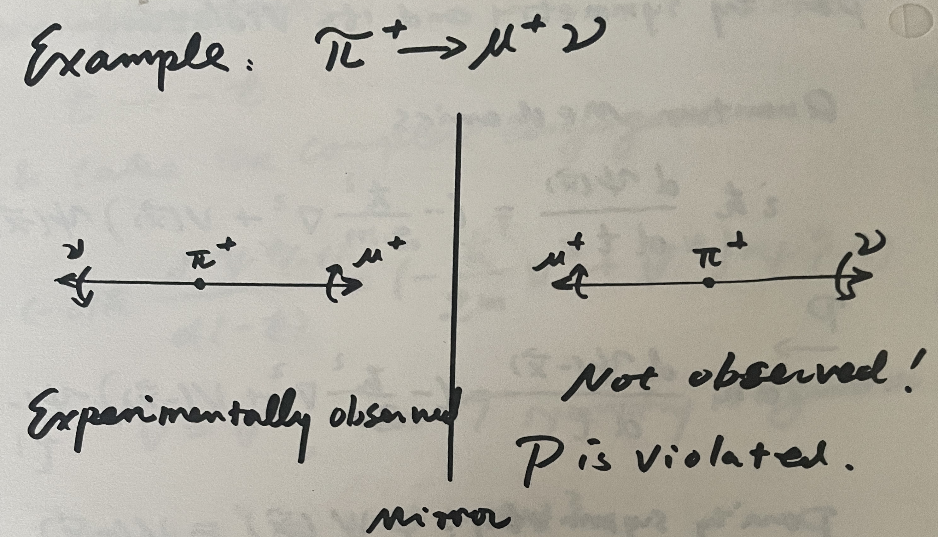 Example: π⁺ → μ⁺ ν
ν π⁺ μ⁺
μ⁺ π⁺ ν
Experimentally observed
Not observed!
P is violated.
Mirror